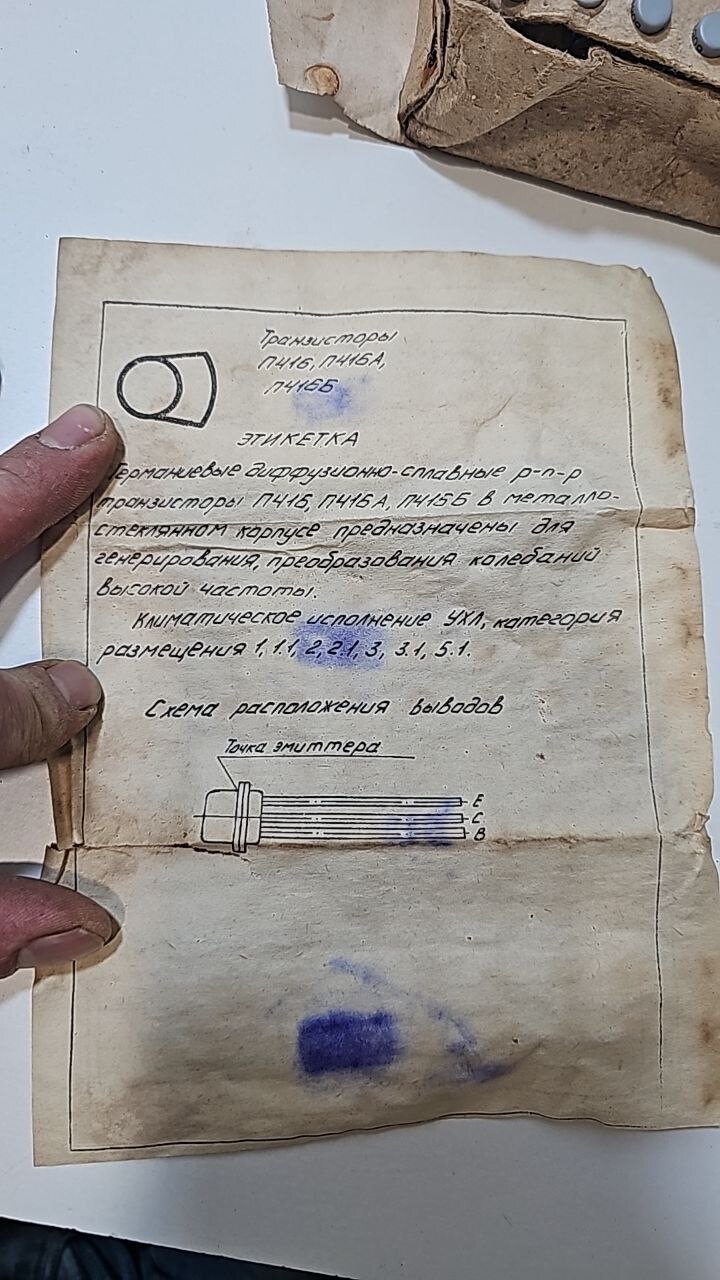 Транзисторы
П416, П416А,
П416Б
ЭТИКЕТКА
Германиевые диффузионно-сплавные p-n-p
транзисторы П416, П416А, П416Б в металло-
стеклянном корпусе предназначены для
генерирования, преобразования колебаний
высокой частоты.
Климатическое исполнение УХЛ, категория
размещения 1, 1.1, 2, 2.1, 3, 3.1, 5.1.
Схема расположения выводов
Точка эмиттера
E
C
B